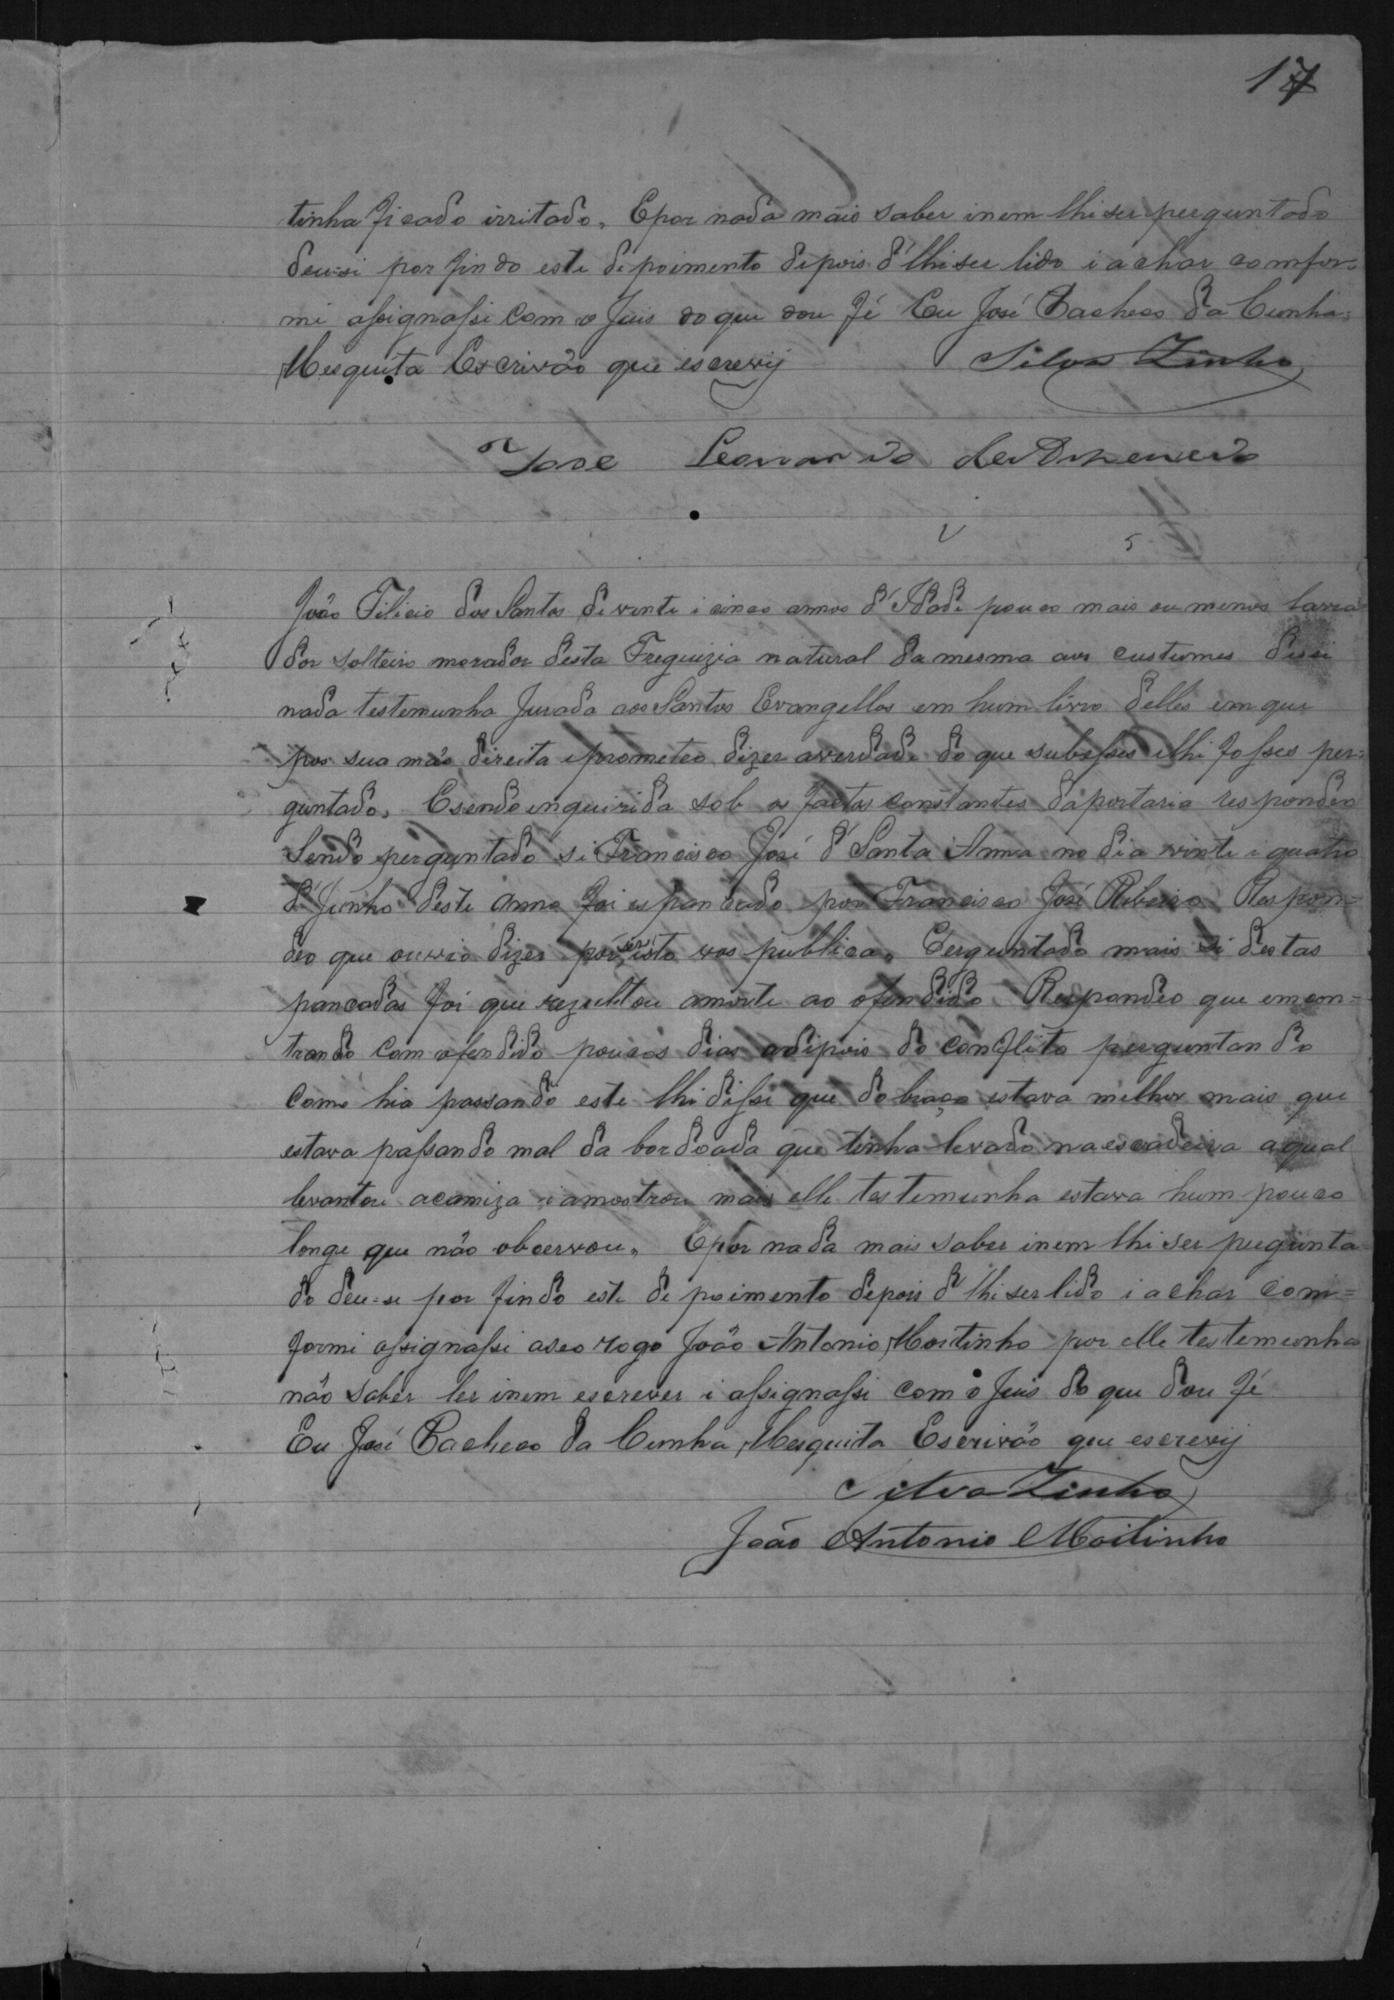 17
tinha ficado irritado, E por nada mais saber inem lhi ser perguntado
deu-si por findo este depoimento depois d'lhi ser lido i achar comfor-
mi assignassi com o Juis do que dou fé Eu José Pacheco da Cunha
Mesquita Escrivão que escrevij Silva Zinho
José Leonardo de
João Filicio dos Santos di vinte i cinco annos d'Idadi pouco mais ou menos lavra
dor solteiro morador desta Freguizia natural da mesma aos custumes dissi
nada testemunha Jurada aos Santos Evangellos em hum livro delles em que
pos sua mão direita eprometeo dizer averdadi do que subesses elhi fosses per=
guntado, Esendo enquirida sob os factos constantes daportaria respondeo
Sendo perguntado si Francisco José d'Santa Anna no dia vinte i quatro
d'Junho deste anno foi espancado por Francisco José Ribeiro Respon=
deo que ouvio dizer por ser isto vos publica, Perguntado mais si destas
pancadas foi que rezultou amorte ao ofendido Respondeo que emcon=
trando com ofendido poucos dias adipois do conflito perguntando
como hia passando este lhi dissi que do braço estava milhor mais que
estava passando mal da bordoada que tinha levado na escadeira aqual
levantou acamiza iamostrou mais elle testemunha estava hum pouco
longe que não obcervou, Epor nada mais saber inem lhi ser pregunta
do deu-se por findo este depoimento depois d'lhi ser lido i achar com=
formi assignassi aseo rogo João Antonio Moitinho por elle testemunha
não saber ler inem escrever i assignassi com o Juis do que dou fé
Eu José Pacheco da Cunha Mesquita Escrivão que escrevij
Silva Zinho
João Antonio Moitinho